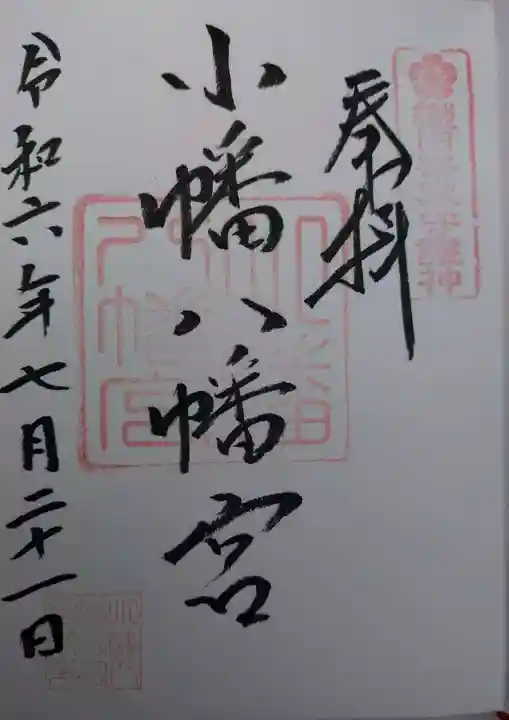 奉拝
小幡八幡宮
令和六年七月二十一日
小幡八幡宮